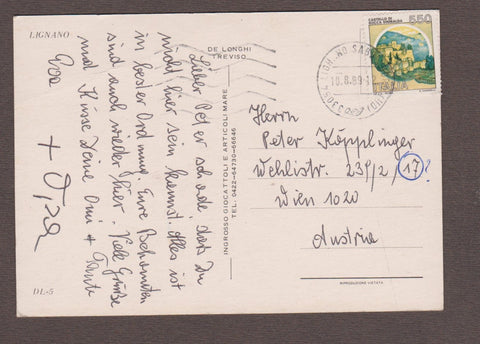 LIGNANO
Lieber Peter schade, dass Du
nicht hier sein kannst. Alles ist
in bester Ordnung. Eure Bekannten
sind auch wieder hier. Viele Grüße
und Küsse Deine Omi + Tante
Eva
+ Opa
DL-5
DE LONGHI
TREVISO
INGROSSO GIOCATTOLI E ARTICOLI MARE
TEL. 0422-64730-66646
CASTELLO DI
ROCCA SINIBALDA
550
ITALIA
18.8.89-12
33054
Herrn
Peter Köpplinger
Wehlistr. 239/2/17?
Wien 1020
Austria
RIPRODUZIONE VIETATA